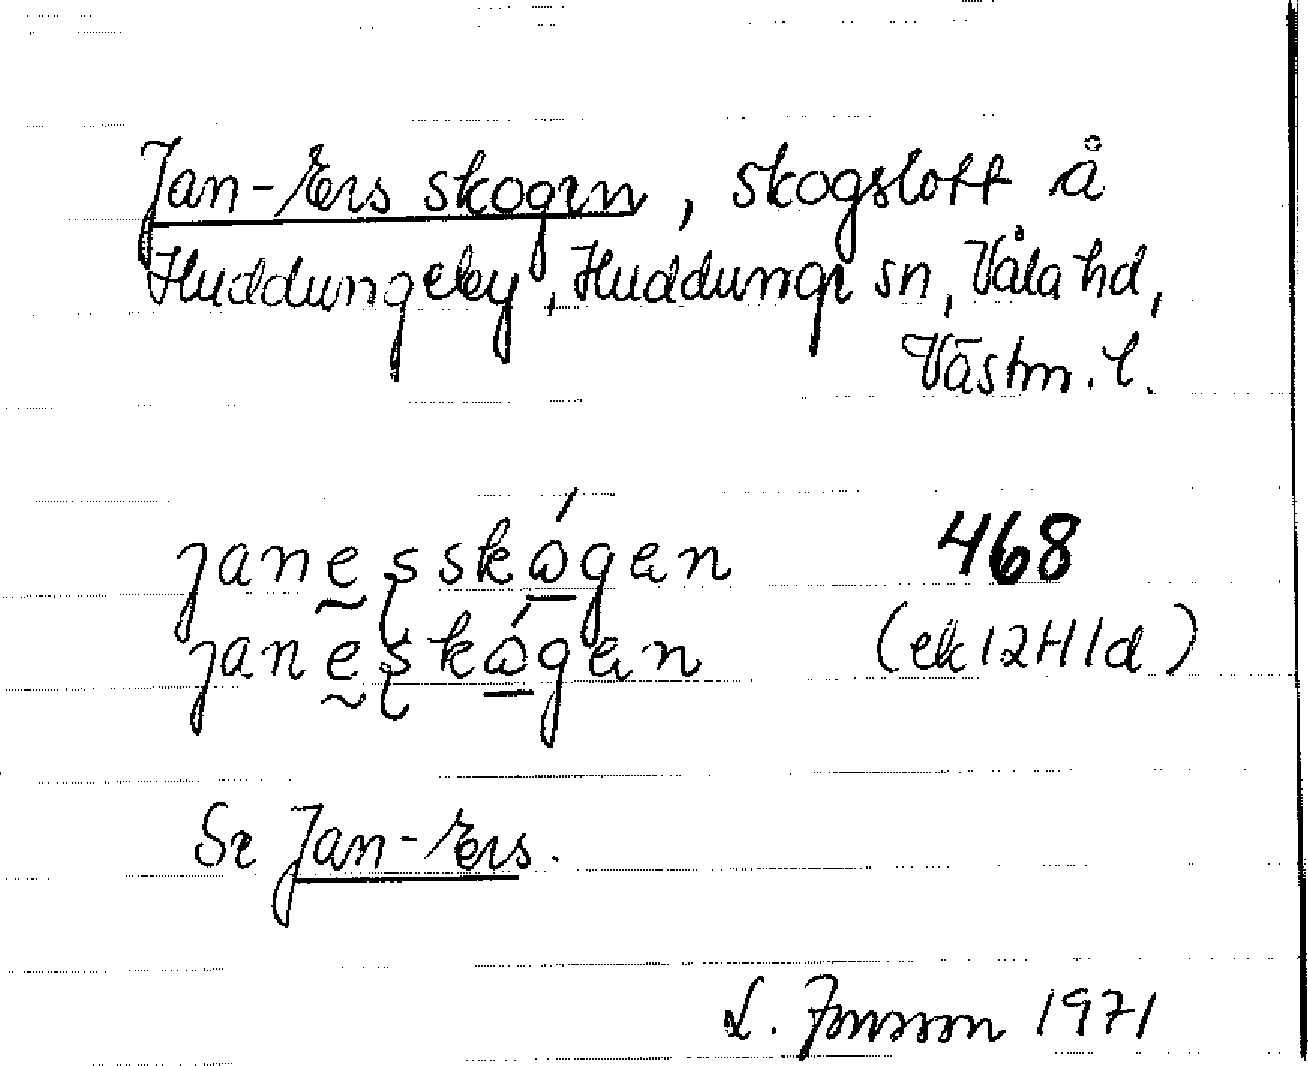 Jan-Ers skogen, skogslott å
Huddungeby, Huddunge sn, Våla hd,
Västm. l.
janes̨skǿgen 468
janes̨kǿgen (ek 12H1d)
Se Jan-Ers.
L. Jonsson 1971